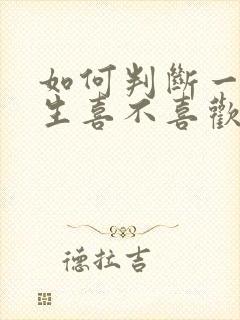 如何判斷一
生喜不喜歡
德拉吉